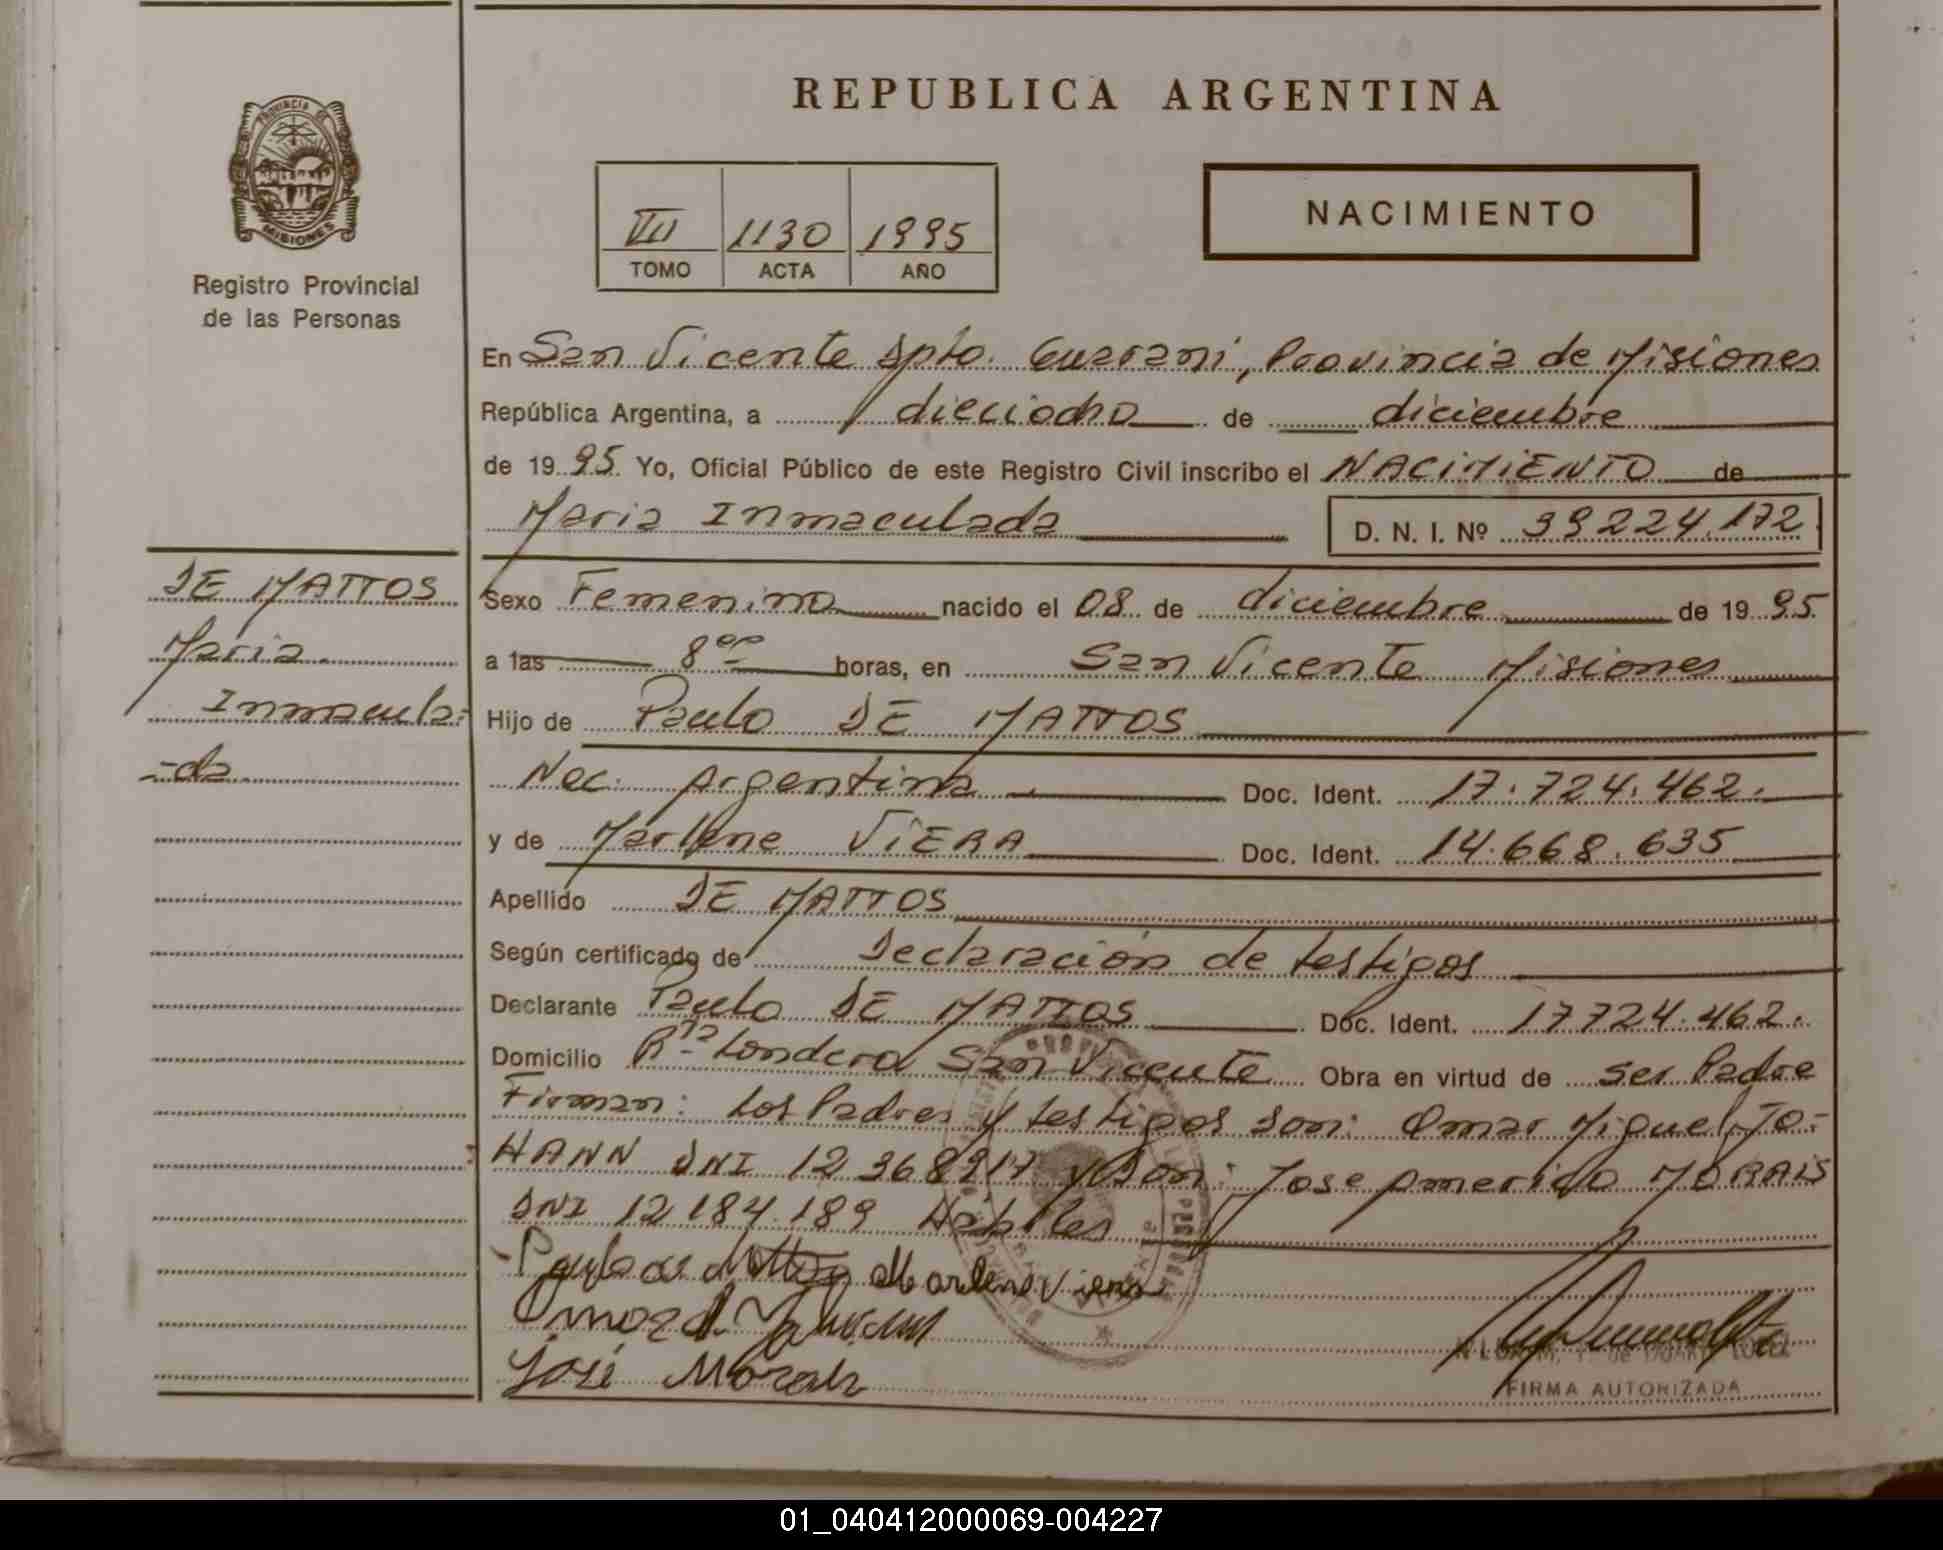 REPUBLICA ARGENTINA
PROVINCIA DE MISIONES
Registro Provincial
de las Personas
VII 1130 1995
TOMO ACTA AÑO
NACIMIENTO
En San Vicente Dpto. Guarani, Provincia de Misiones
República Argentina, a dieciocho de diciembre
de 1995 Yo, Oficial Público de este Registro Civil inscribo el NACIMIENTO de
Maria Inmaculada D. N. I. Nº 39224.172
DE MATTOS
Maria
Inmacula-
-da
Sexo Femenino nacido el 08 de diciembre de 1995
a las 8 00 horas, en San Vicente Misiones
Hijo de Paulo DE MATTOS
Nac. Argentina Doc. Ident. 17.724.462.
y de Marlene VIERA Doc. Ident. 14.668.635
Apellido DE MATTOS
Según certificado de Declaración de testigos
Declarante Paulo DE MATTOS Doc. Ident. 17724.462.
Domicilio Londero San Vicente Obra en virtud de ser Padre
Firman: Los Padres y testigos son: Omar Miguel JO-
HANN DNI 12 368917 y Don: Jose Americo MORAIS
DNI 12 184.189 Habiles
Paulo de Mattos Marlene Viera
José Morais
FIRMA AUTORIZADA
01_040412000069-004227